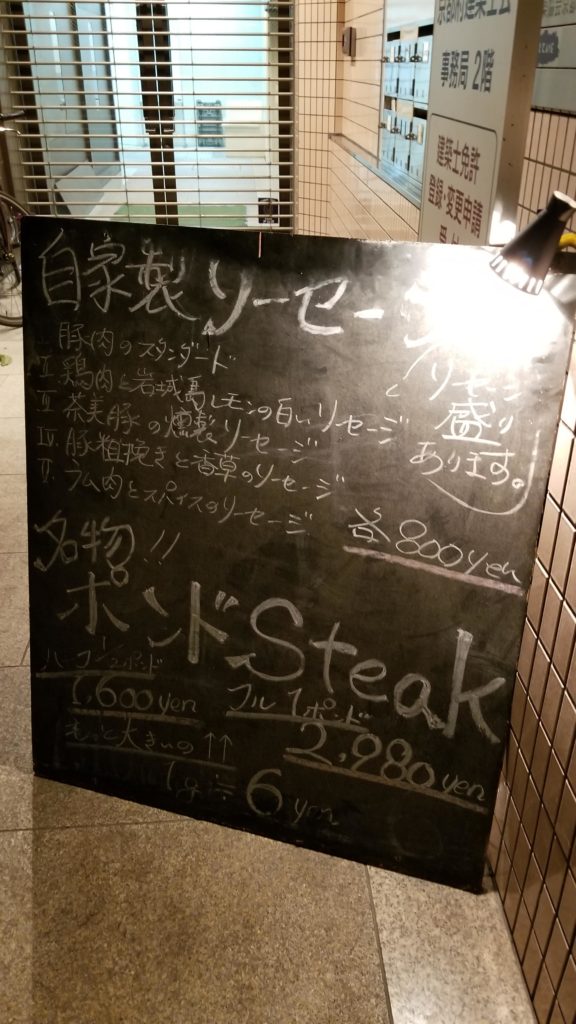 京都府建築士会
事務局 2階
建築士免許
登録・変更申請
自家製ソーセージ
豚肉のスタンダード
II. 鶏肉と岩城島レモンの白いソーセージ
III. 茶美豚の燻製ソーセージ
IV. 豚粗挽きと香草のソーセージ
V. ラム肉とスパイスのソーセージ
ソーセージ
盛り
あります。
各800yen
名物!!
ポンドSteak
ハーフ1/2ポンド
1,600yen
フル1ポンド
2,980yen
もっと大きいの↑↑
1g≒6yen